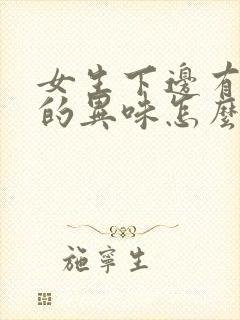 女生下邊有
的異味怎麼
施寧生